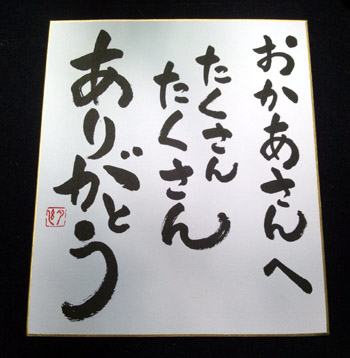 おかあさんへ
たくさん
たくさん
ありがとう